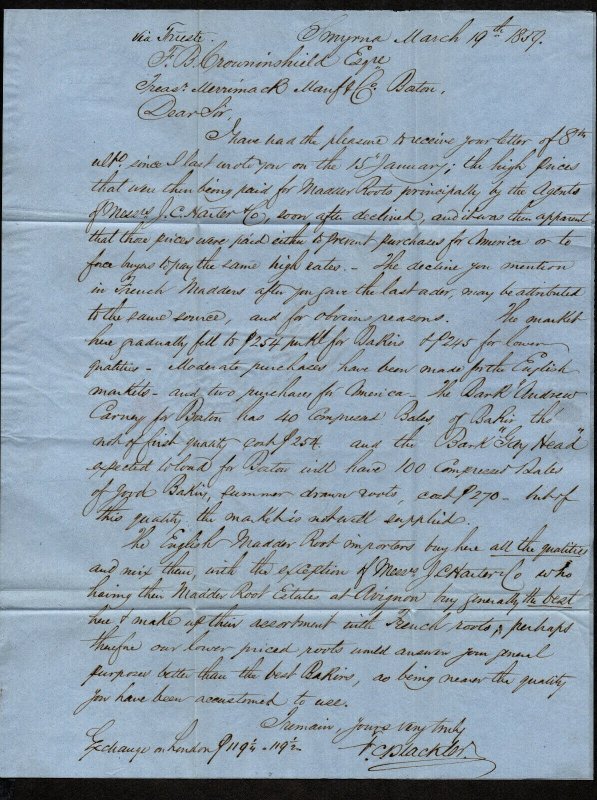 via Trieste. Smyrna March 19th 1859.
F. B. Crowninshield Esqre
Treasr Merrimack Manfg Co Boston,
Dear Sir,
I have had the pleasure to receive your letter of 8th
ulto. since I last wrote you on the 15 January; the high prices
that were then being paid for Madder Roots principally by the Agents
of Messrs J. C. Harter & Co, soon after declined, and it was then apparent
that those prices were paid either to prevent purchases for America or to
force buyers to pay the same high rates. – The decline you mention
in French Madders after you gave the last order, may be attributed
to the same source, and for obvious reasons. The market
here gradually fell to P254 for Bakirs & P245 for lower
qualities – Moderate purchases have been made for the English
markets – and two purchases for America – The Bark "Andrew
Carney" for Boston has 40 Compressed Bales, of Bakir tho'
not of first quality cost P254 and the Bark "Gay Head"
expected to load for Boston will have 100 Compressed Bales
of good Bakirs, summer drawn roots, cost P270 – but of
this quality the market is not well supplied.
The English Madder Root importers buy here all the qualities
and mix them with the exception of Messrs J. C. Harter & Co who
having their Madder Root Estates at Avignon buy generally the best
here & make up their assortment with French roots, perhaps
therefore our lower priced roots would answer your general
purposes better than the best Bakirs, as being nearer the quality
you have been accustomed to use.
I remain, yours very truly
Exchange on London P119¼ – 119½